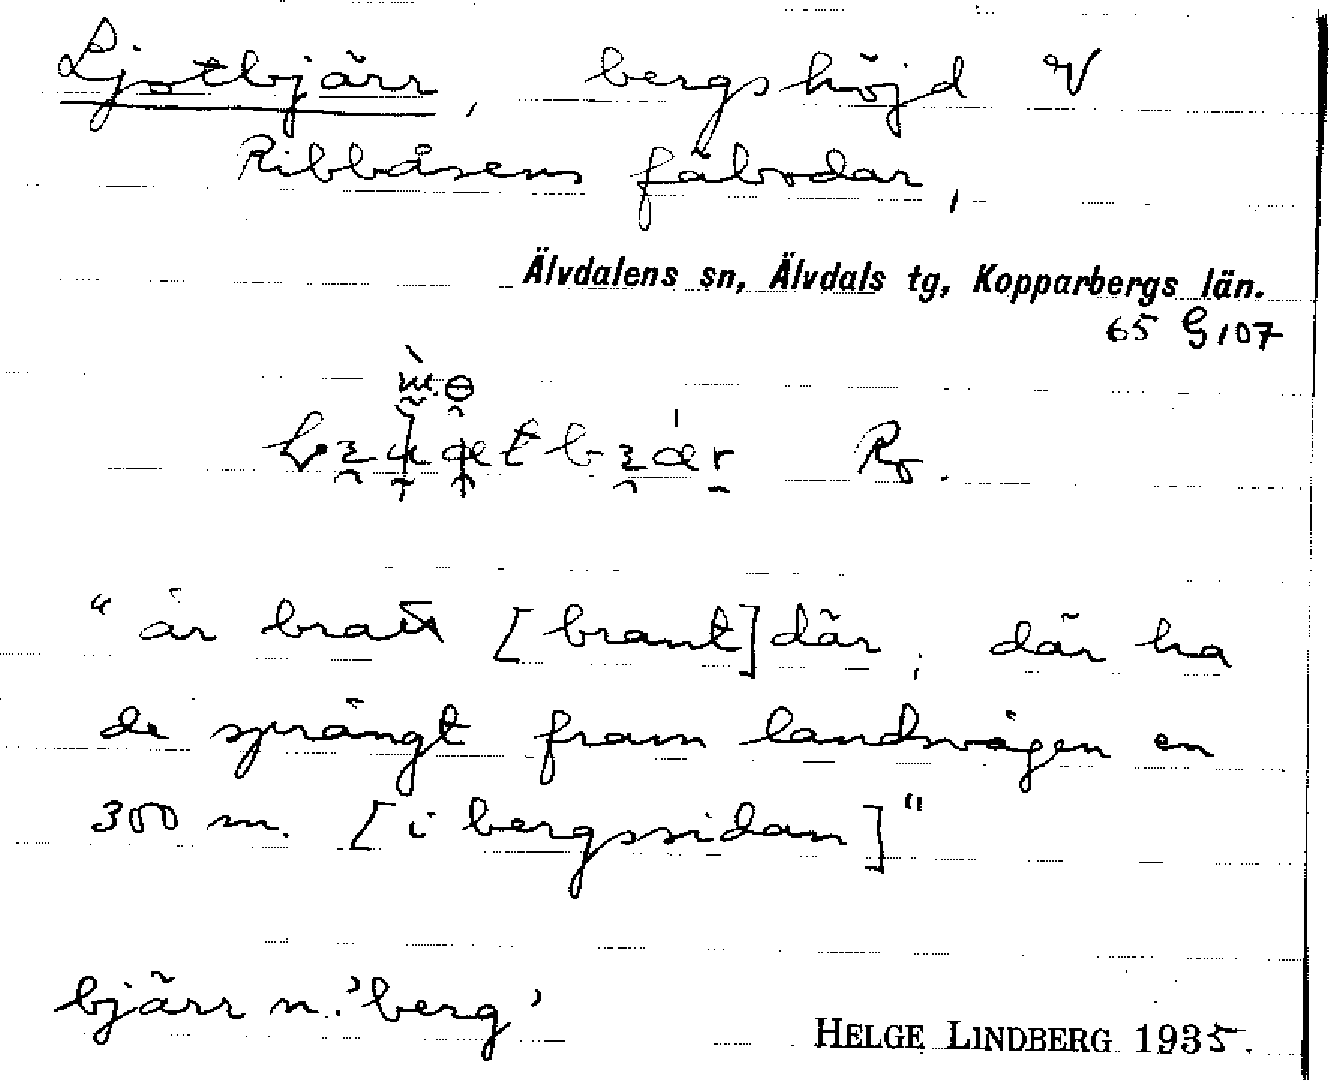 Ljotbjärr, bergshöjd V
Ribbåsens fäbodar,
Älvdalens sn, Älvdals tg, Kopparbergs län.
65 G 107
R.
"är bratt [brant] där, där ha
de sprängt fram landsvägen en
300 m. [i bergssidan]"
bjärr n. 'berg'
HELGE LINDBERG 1935.